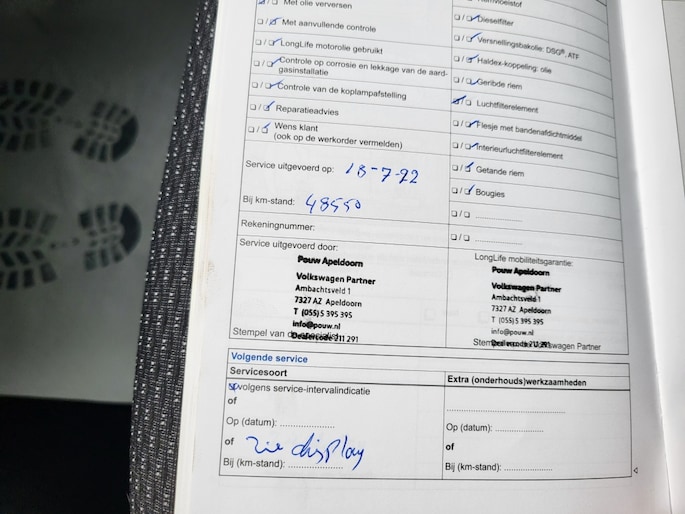 Met olie verversen
Met aanvullende controle
LongLife motorolie gebruikt
Controle op corrosie en lekkage van de aard-
gasinstallatie
Controle van de koplampafstelling
Reparatieadvies
Wens klant
(ook op de werkorder vermelden)
Service uitgevoerd op: 18-7-22
Bij km-stand: 48550
Rekeningnummer:
Service uitgevoerd door:
Pouw Apeldoorn
Volkswagen Partner
Ambachtsveld 1
7327 AZ Apeldoorn
T (055) 5 395 395
info@pouw.nl
Dealercode 211 291
Stempel van de
Dieselfilter
Versnellingsbakolie: DSG®, ATF
Haldex-koppeling: olie
Geribde riem
Luchtfilterelement
Flesje met bandenafdichtmiddel
Interieurluchtfilterelement
Getande riem
Bougies
LongLife mobiliteitsgarantie:
Pouw Apeldoorn
Volkswagen Partner
Ambachtsveld 1
7327 AZ Apeldoorn
T (055) 5 395 395
info@pouw.nl
Dealercode 211 291
Volkswagen Partner
Volgende service
Servicesoort
volgens service-intervalindicatie
of
Op (datum):
of zie display
Bij (km-stand):
Extra (onderhouds)werkzaamheden
Op (datum):
of
Bij (km-stand):